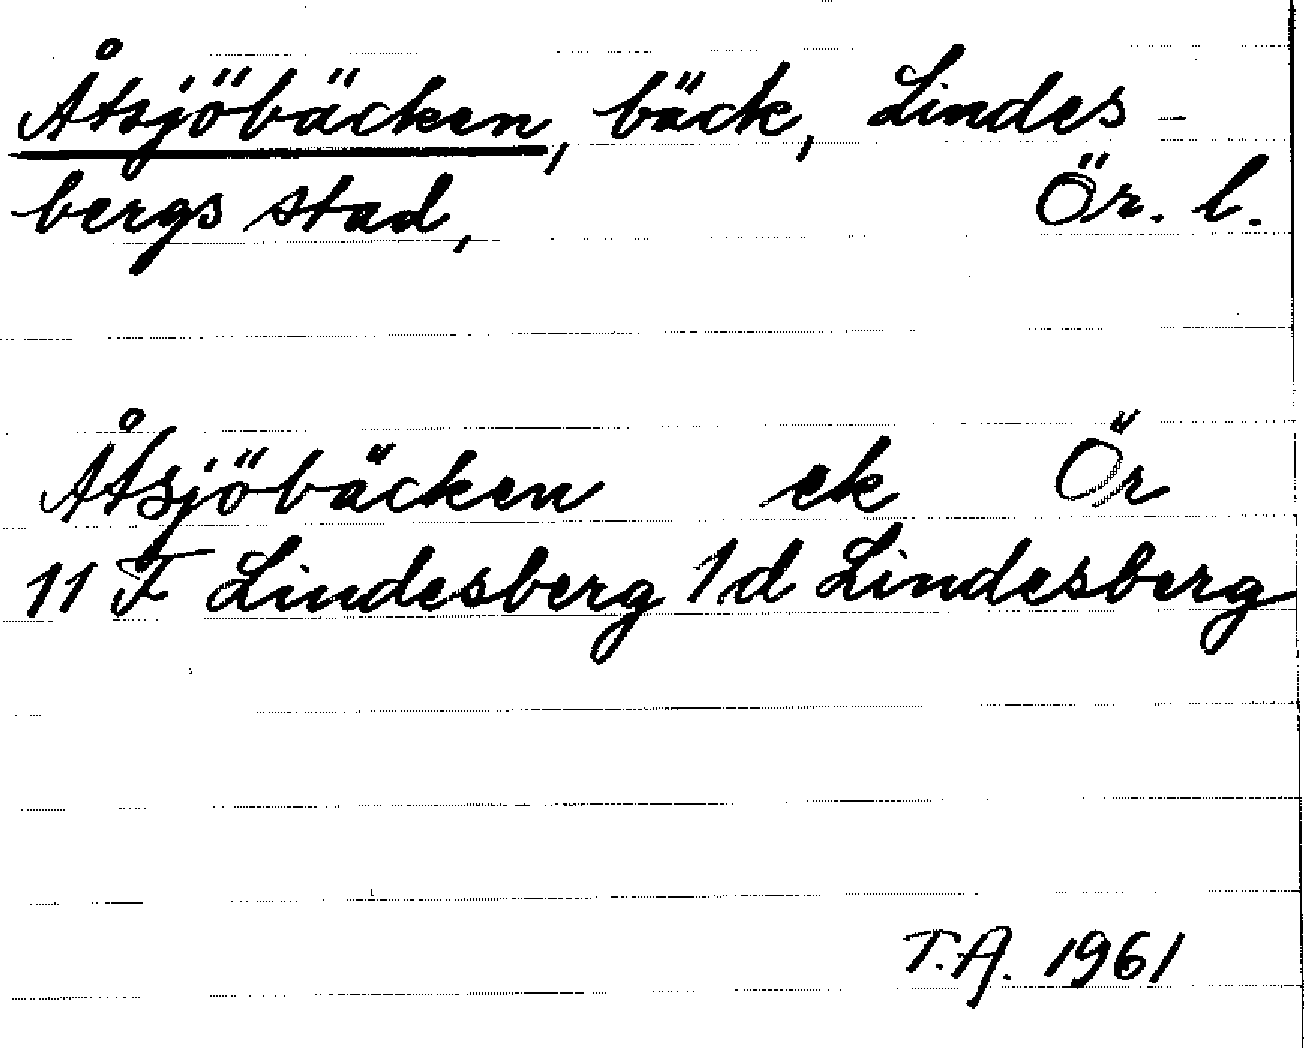 Åtsjöbäcken, bäck, Lindes-
bergs stad, Ör. l.
Åtsjöbäcken ek Ör
11 F Lindesberg 1d Lindesberg
T.A. 1961